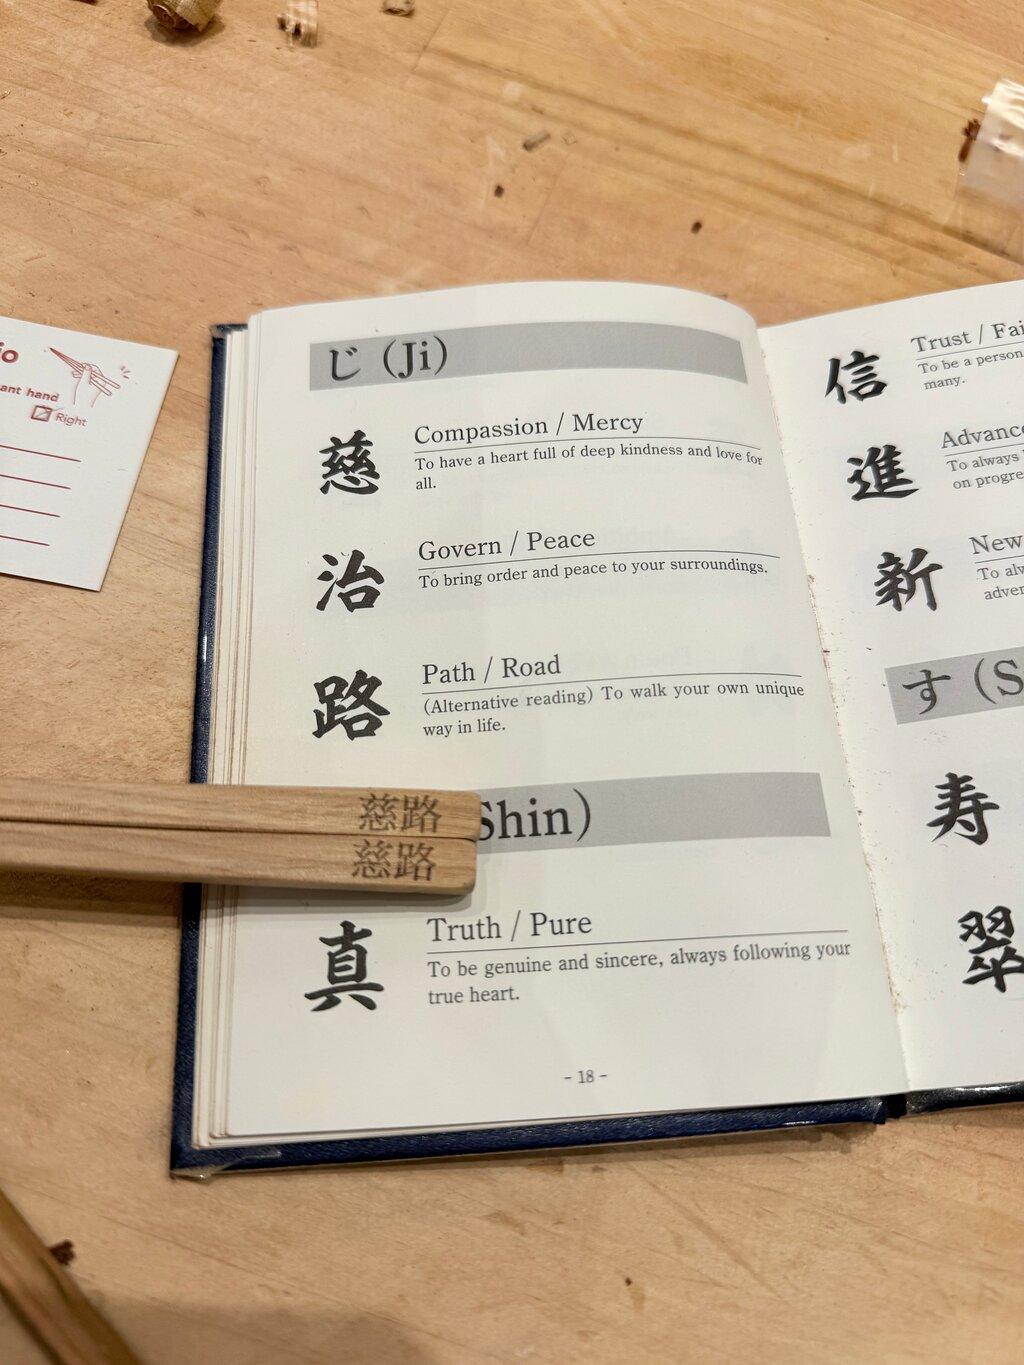 io
ant hand
Right
じ (Ji)
慈
Compassion / Mercy
To have a heart full of deep kindness and love for
all.
治
Govern / Peace
To bring order and peace to your surroundings.
路
Path / Road
(Alternative reading) To walk your own unique
way in life.
慈路
慈路
Shin)
真
Truth / Pure
To be genuine and sincere, always following your
true heart.
- 18 -
信
Trust / Fai
To be a person
many.
進
Advance
To always
on progre
新
New
To alw
adven
す (S
寿
翠